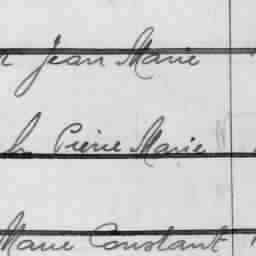 Jean Marie
Pierre Marie
Marie Constant